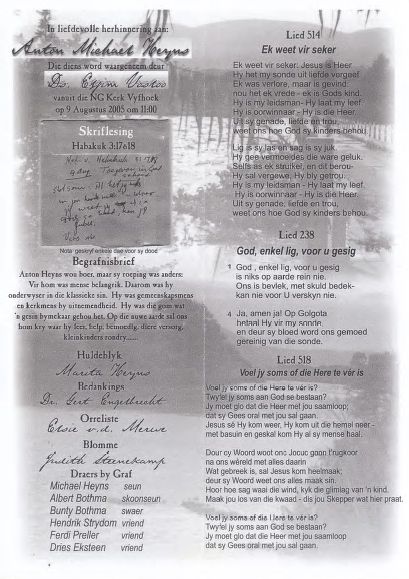 In liefdevolle herhinnering aan:
Anton Michael Heyns
Die diens word waargeneem deur
Ds.
vanuit die NG Kerk Vyfhoek
op 9 Augustus 2005 om 11:00
Skriflesing
Habakuk 3:17&18
Nota geskryf enkele dae voor sy dood
Begrafnisbrief
Anton Heyns wou boer, maar sy roeping was anders:
Vir hom was mense belangrik. Daarom was hy
onderwyser in die klassieke sin. Hy was gemeenskapsmens
en kerkmens by uitnemendheid. Hy was die gom wat
'n gesin bymekaar gehou het. Op die nuwe aarde sal ons
hom kry waar hy leer, help, bemoedig, diere versorg,
kleinkinders rondry......
Huldeblyk
Marita Heyns
Bedankings
Dr. Gert Engelbrecht
Orreliste
Elsie v.d. Merwe
Blomme
Judith Steenekamp
Draers by Graf
Michael Heyns seun
Albert Bothma skoonseun
Bunty Bothma swaer
Hendrik Strydom vriend
Ferdi Preller vriend
Dries Eksteen vriend
Lied 514
Ek weet vir seker
Ek weet vir seker: Jesus is Heer
Hy het my sonde uit liefde vergeef
Ek was verlore, maar is gevind:
nou het ek vrede - ek is Gods kind.
Hy is my leidsman- Hy laat my leef
Hy is oorwinnaar - Hy is die Heer.
Uit sy genade, liefde en trou,
weet ons hoe God sy kinders behou.
Lig is sy las en sag is sy juk,
Hy gee vermoeides die ware geluk.
Selfs as ek struikel, en dit berou-
Hy sal vergewe, Hy bly getrou.
Hy is my leidsman - Hy laat my leef.
Hy is oorwinnaar - Hy is die Heer.
Uit sy genade, liefde en trou,
weet ons hoe God sy kinders behou.
Lied 238
God, enkel lig, voor u gesig
1 God , enkel lig, voor u gesig
is niks op aarde rein nie.
Ons is bevlek, met skuld bedek-
kan nie voor U verskyn nie.
4 Ja, amen ja! Op Golgota
betaal Hy vir my sonde
en deur sy bloed word ons gemoed
gereinig van die sonde.
Lied 518
Voel jy soms of die Here te vêr is
Voel jy soms of die Here te vêr is?
Twyfel jy soms aan God se bestaan?
Jy moet glo dat die Heer met jou saamloop;
dat sy Gees oral met jou sal gaan.
Jesus sê Hy kom weer, Hy kom uit die hemel neer -
met basuin en geskal kom Hy al sy mense haal.
Dour oy Woord woot ons Jocuc goop t'rugkoor
na ons wêreld met alles daarin
Wat gebreek is, sal Jesus kom heelmaak;
deur sy Woord weet ons alles maak sin.
Hoor hoe sag waai die wind, kyk die glimlag van 'n kind.
Maak jou los van die kwaad - dis jou Skepper wat hier praat.
Voel jy soms of die Here te vêr is?
Twyfel jy soms aan God se bestaan?
Jy moet glo dat die Heer met jou saamloop
dat sy Gees oral met jou sal gaan.